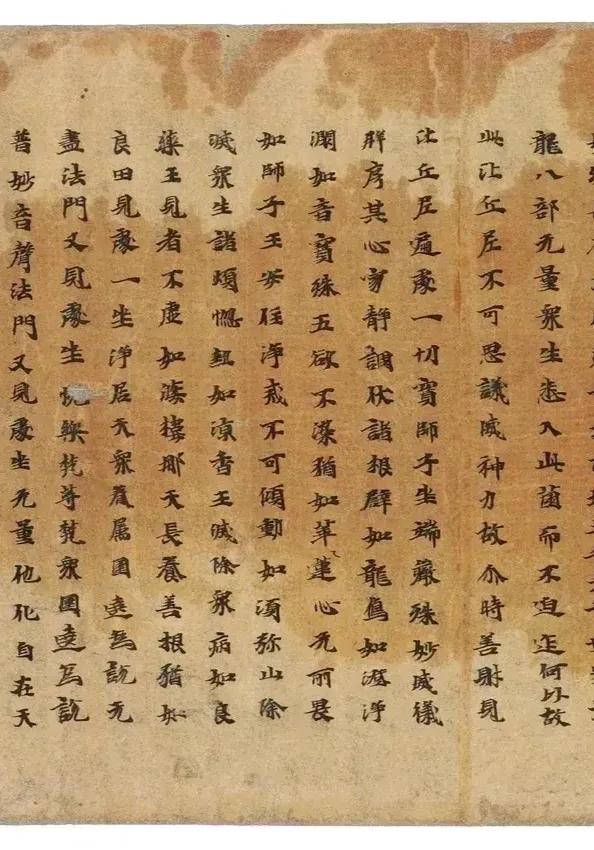 龍八部无量衆生悉入此薗而不迫迮何以故
此比丘尼不可思議威神力故尒時善財見
比丘尼遍處一切寶師子坐端嚴殊妙威儀
庠序其心寂静調伏諸根辟如龍象如澄淨
淵如意寶珠五欲不染猶如華蓮心无所畏
如師子王安住淨戒不可傾動如須弥山除
滅衆生諸煩惱熱如涼香王滅除衆病如良
藥王見者不虛如婆樓那天長養善根猶如
良田見處一坐淨居天衆眷属圍遶為說无
盡法門又見處坐悦樂梵尊梵衆圍遶為說
普妙音聲法門又見處坐无量他化自在天